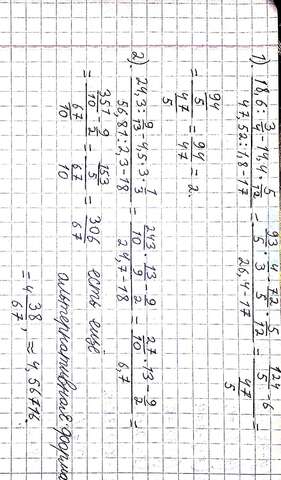 1). (18,6 : 3/4 - 14,4 · 5/12) / (47,52 : 1,8 - 17) = (93/5 · 4/3 - 72/5 · 5/12) / (26,4 - 17) = (124/5 - 6) / (47/5)
= (94/5) / (47/5) = 94/47 = 2.
2). (24,3 : 9/13 - 4,5 · 3 · 1/3) / (56,81 : 2,3 - 18) = (243/10 · 13/9 - 9/2) / (24,7 - 18) = (27/10 · 13 - 9/2) / 6,7 =
= (351/10 - 9/2) / (67/10) = (153/5) / (67/10) = 306/67 есть ещё
альтернативная форма
= 4 38/67, ≈ 4,56716.